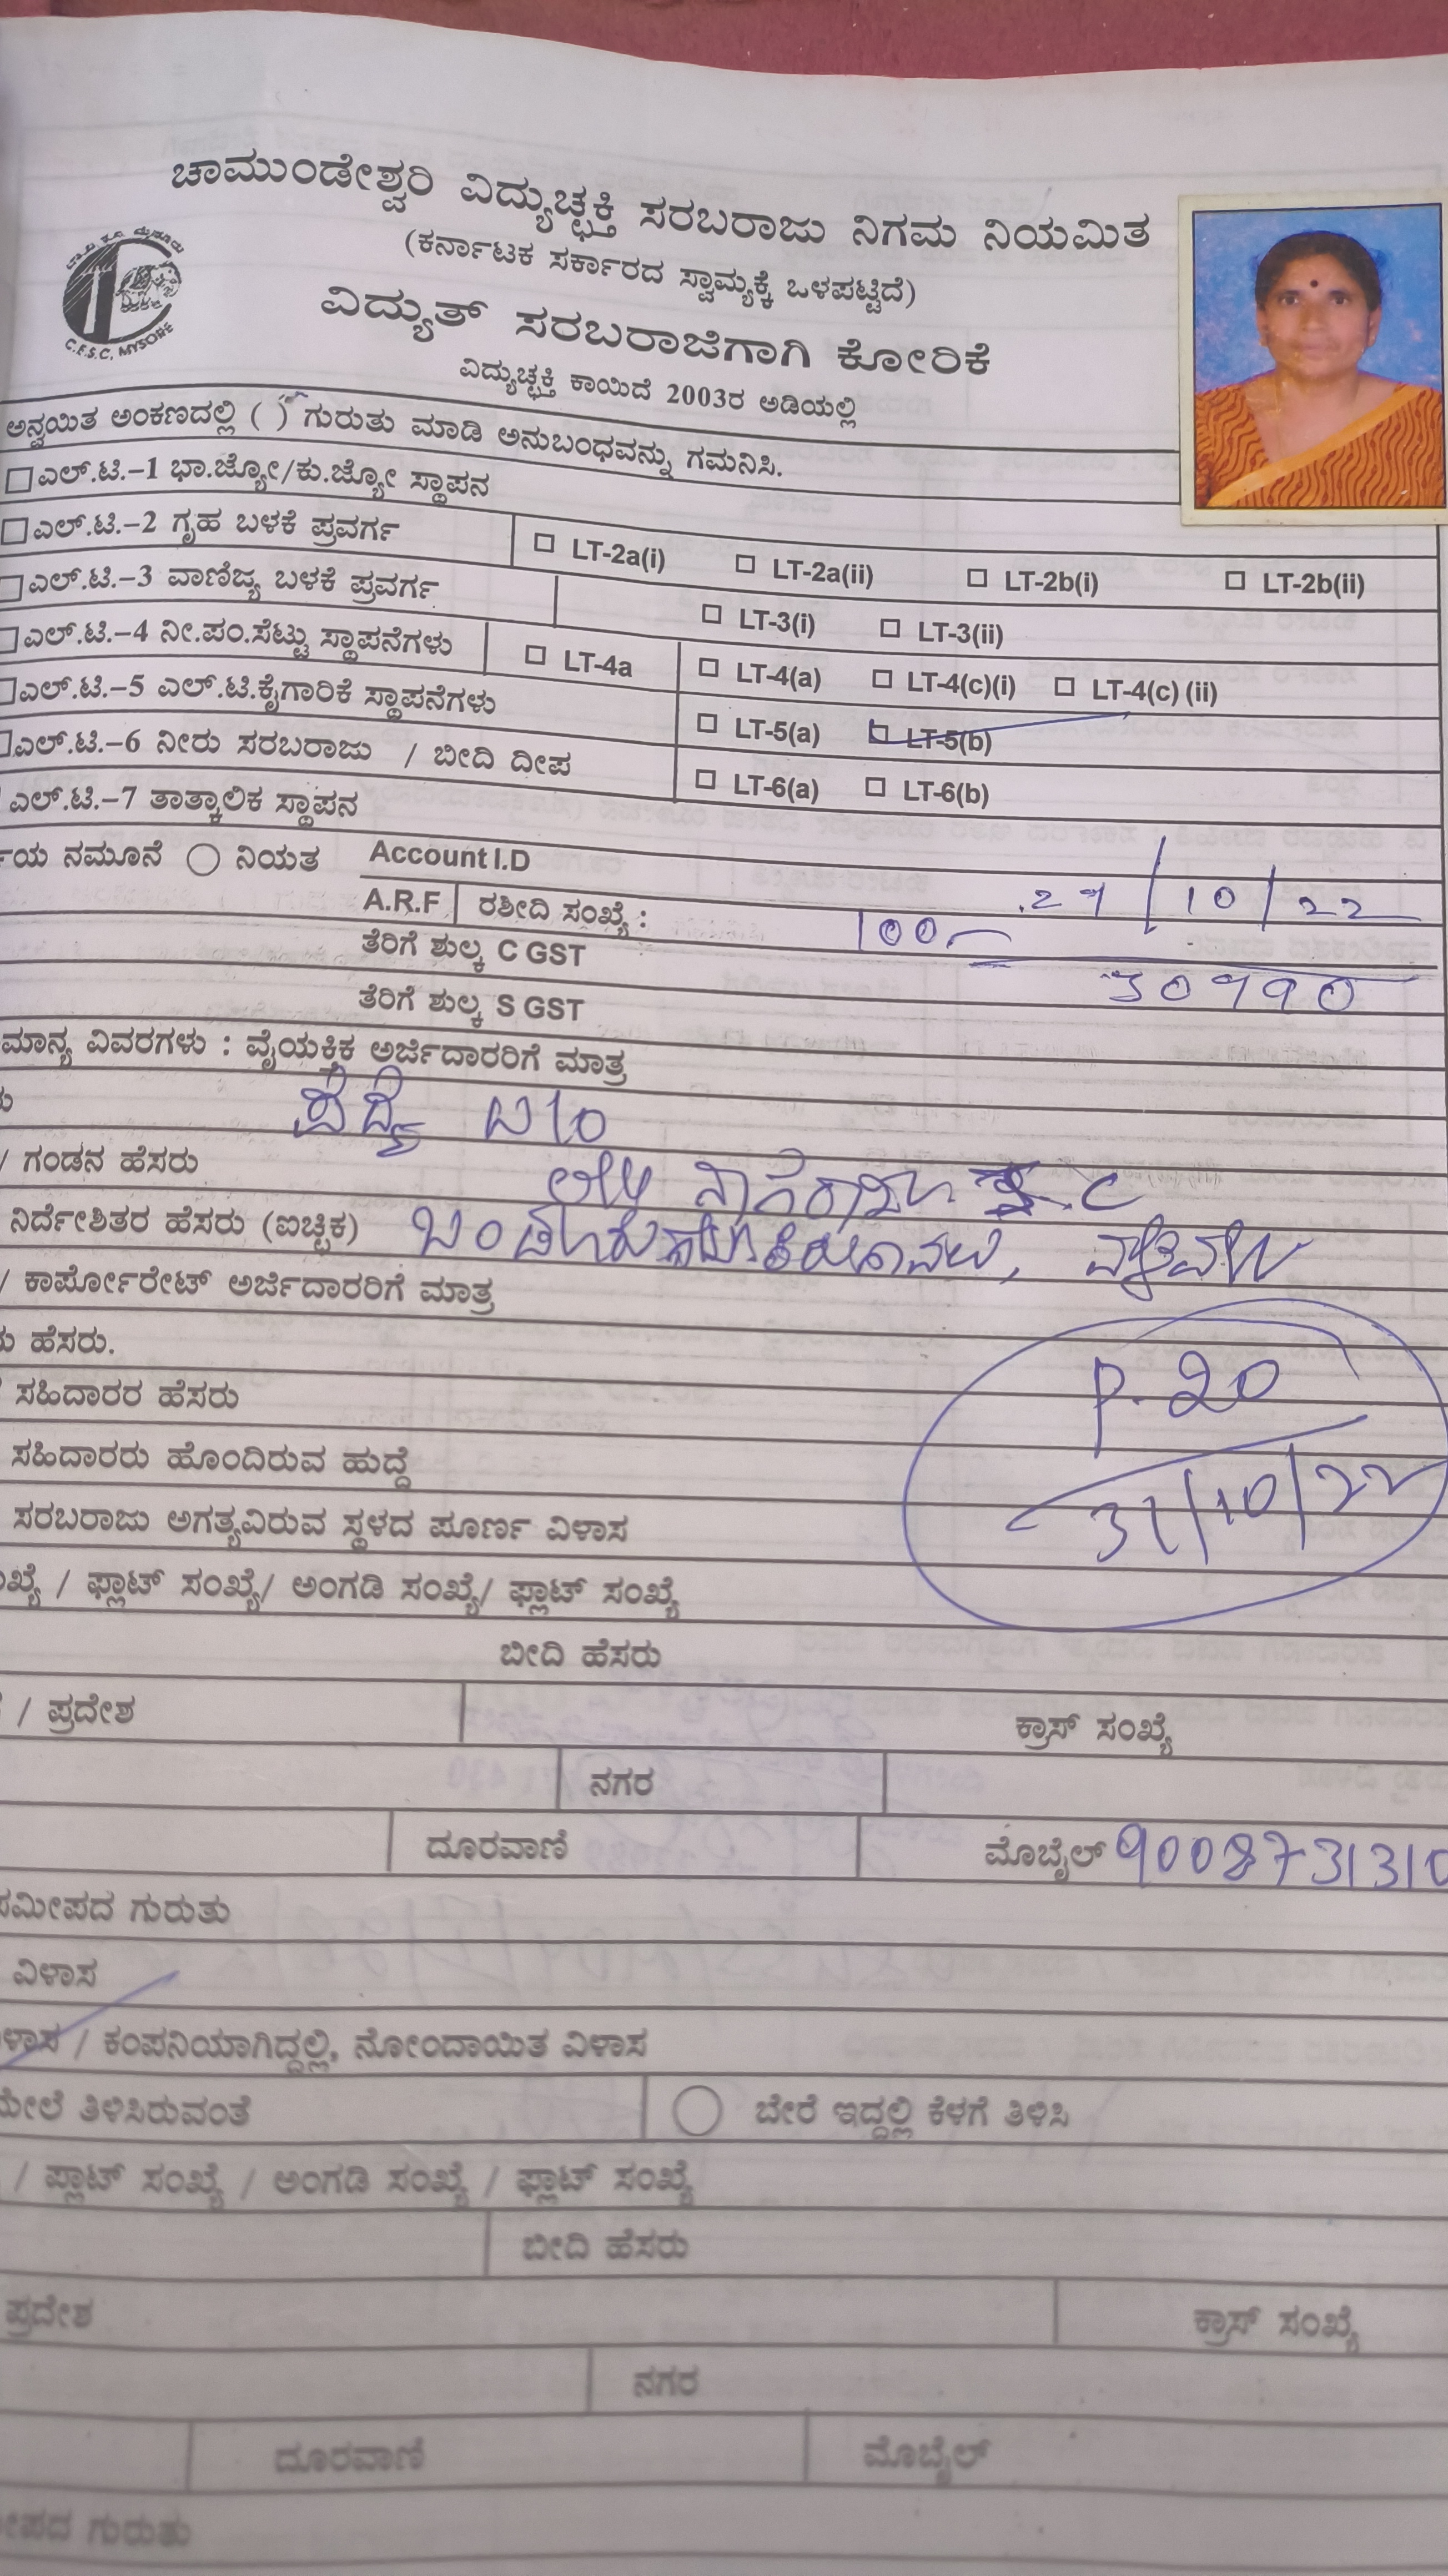 ಚಾಮುಂಡೇಶ್ವರಿ ವಿದ್ಯುಚ್ಛಕ್ತಿ ಸರಬರಾಜು ನಿಗಮ ನಿಯಮಿತ
(ಕರ್ನಾಟಕ ಸರ್ಕಾರದ ಸ್ವಾಮ್ಯಕ್ಕೆ ಒಳಪಟ್ಟಿದೆ)
C.E.S.C. MYSORE
ವಿದ್ಯುತ್ ಸರಬರಾಜಿಗಾಗಿ ಕೋರಿಕೆ
ವಿದ್ಯುಚ್ಛಕ್ತಿ ಕಾಯಿದೆ 2003ರ ಅಡಿಯಲ್ಲಿ
ಅನ್ವಯಿತ ಅಂಕಣದಲ್ಲಿ ( ) ಗುರುತು ಮಾಡಿ ಅನುಬಂಧವನ್ನು ಗಮನಿಸಿ.
ಎಲ್.ಟಿ.–1 ಭಾ.ಜ್ಯೋ/ಕು.ಜ್ಯೋ ಸ್ಥಾಪನ
ಎಲ್.ಟಿ.–2 ಗೃಹ ಬಳಕೆ ಪ್ರವರ್ಗ LT-2a(i) LT-2a(ii) LT-2b(i) LT-2b(ii)
ಎಲ್.ಟಿ.–3 ವಾಣಿಜ್ಯ ಬಳಕೆ ಪ್ರವರ್ಗ LT-3(i) LT-3(ii)
ಎಲ್.ಟಿ.–4 ನೀ.ಪಂ.ಸೆಟ್ಟು ಸ್ಥಾಪನೆಗಳು LT-4a LT-4(a) LT-4(c)(i) LT-4(c) (ii)
ಎಲ್.ಟಿ.–5 ಎಲ್.ಟಿ.ಕೈಗಾರಿಕೆ ಸ್ಥಾಪನೆಗಳು LT-5(a) LT-5(b)
ಎಲ್.ಟಿ.–6 ನೀರು ಸರಬರಾಜು / ಬೀದಿ ದೀಪ LT-6(a) LT-6(b)
ಎಲ್.ಟಿ.–7 ತಾತ್ಕಾಲಿಕ ಸ್ಥಾಪನ
ನಮೂನೆ ನಿಯತ Account I.D
A.R.F ರಶೀದಿ ಸಂಖ್ಯೆ : 100 27/10/22
ತೆರಿಗೆ ಶುಲ್ಕ C GST 30990
ತೆರಿಗೆ ಶುಲ್ಕ S GST
ಮಾನ್ಯ ವಿವರಗಳು : ವೈಯಕ್ತಿಕ ಅರ್ಜಿದಾರರಿಗೆ ಮಾತ್ರ
/ ಗಂಡನ ಹೆಸರು
ನಿರ್ದೇಶಿತರ ಹೆಸರು (ಐಚ್ಛಿಕ)
/ ಕಾರ್ಪೋರೇಟ್ ಅರ್ಜಿದಾರರಿಗೆ ಮಾತ್ರ
ಹೆಸರು.
P. 20
ಸಹಿದಾರರ ಹೆಸರು
ಸಹಿದಾರರು ಹೊಂದಿರುವ ಹುದ್ದೆ
31/10/22
ಸರಬರಾಜು ಅಗತ್ಯವಿರುವ ಸ್ಥಳದ ಪೂರ್ಣ ವಿಳಾಸ
/ ಫ್ಲಾಟ್ ಸಂಖ್ಯೆ/ ಅಂಗಡಿ ಸಂಖ್ಯೆ/ ಫ್ಲಾಟ್ ಸಂಖ್ಯೆ
ಬೀದಿ ಹೆಸರು
/ ಪ್ರದೇಶ ಕ್ರಾಸ್ ಸಂಖ್ಯೆ
ನಗರ
ದೂರವಾಣಿ ಮೊಬೈಲ್ 9008731310
ಸಮೀಪದ ಗುರುತು
ವಿಳಾಸ
/ ಕಂಪನಿಯಾಗಿದ್ದಲ್ಲಿ, ನೋಂದಾಯಿತ ವಿಳಾಸ
ಮೇಲೆ ತಿಳಿಸಿರುವಂತೆ ಬೇರೆ ಇದ್ದಲ್ಲಿ ಕೆಳಗೆ ತಿಳಿಸಿ
/ ಪ್ಲಾಟ್ ಸಂಖ್ಯೆ / ಅಂಗಡಿ ಸಂಖ್ಯೆ / ಫ್ಲಾಟ್ ಸಂಖ್ಯೆ
ಬೀದಿ ಹೆಸರು
ಪ್ರದೇಶ ಕ್ರಾಸ್ ಸಂಖ್ಯೆ
ನಗರ
ದೂರವಾಣಿ ಮೊಬೈಲ್
ಗುರುತು